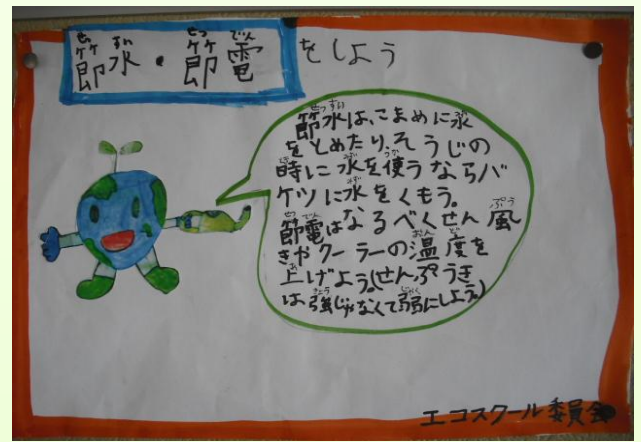 節水・節電をしよう
節水は、こまめに水
をとめたり、そうじの
時に水を使うならバ
ケツに水をくもう。
節電はなるべくせん風
きやクーラーの温度を
上げよう。(せんぷうき
は強じゃなくて弱にしよう。)
エコスクール委員会